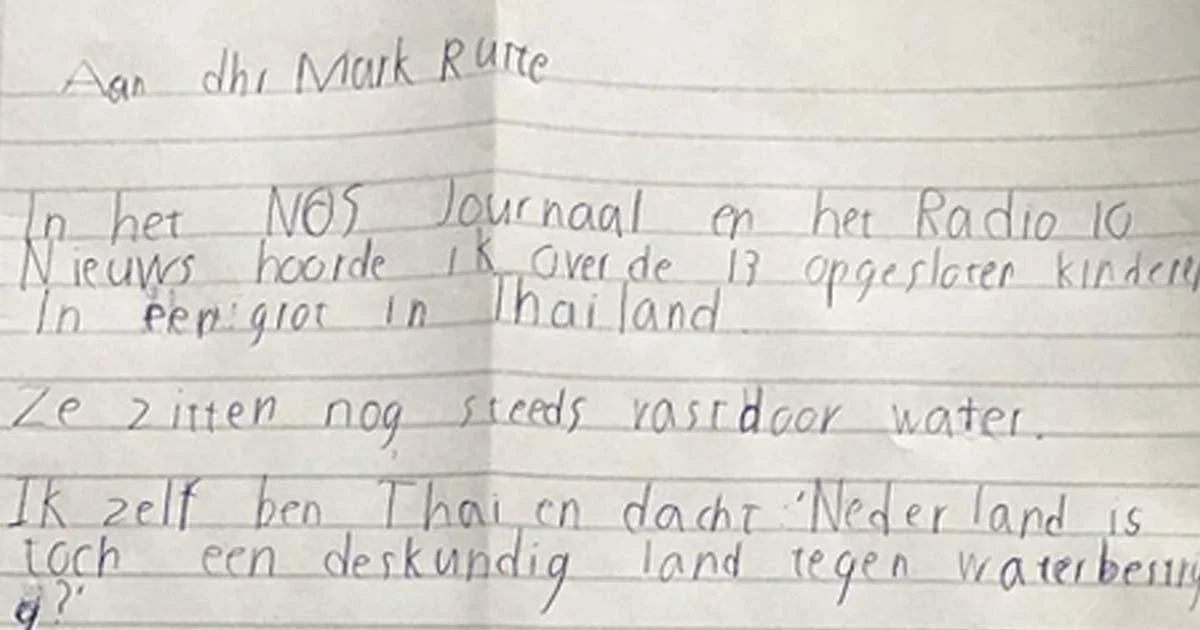 Aan dhr Mark Rutte
In het NOS Journaal en het Radio 10
Nieuws hoorde ik over de 13 opgesloten kinderen
In een grot in Thailand
Ze zitten nog steeds vast door water.
Ik zelf ben Thai en dacht 'Nederland is
toch een deskundig land tegen
g?'